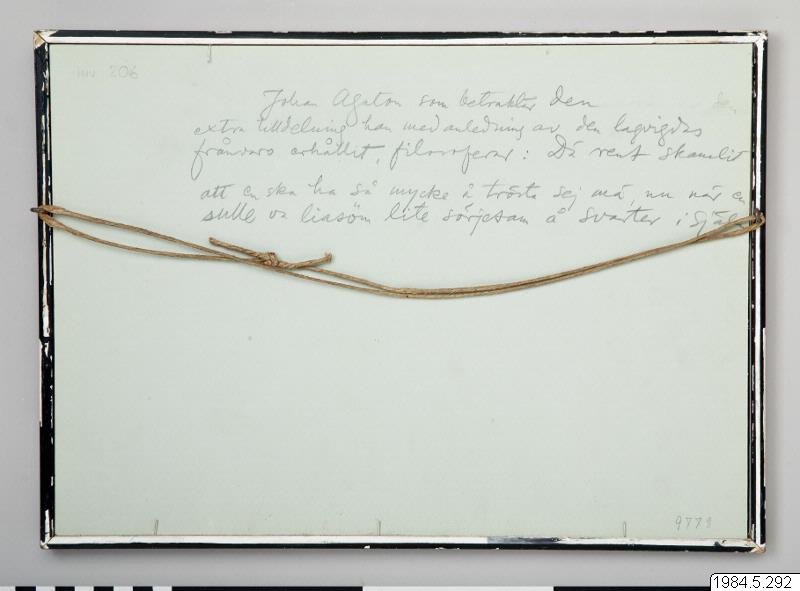 inv 206
Johan Agaton som betraktar den
extra tilldelning han med anledning av den lagvigdas
frånvaro erhållit, filosoferar: Dä rent skamlit
att en ska ha så mycke å trösta sej må, nu när en
sulle va liasöm lite sörjesam å svarter i själ
9779
1984.5.292